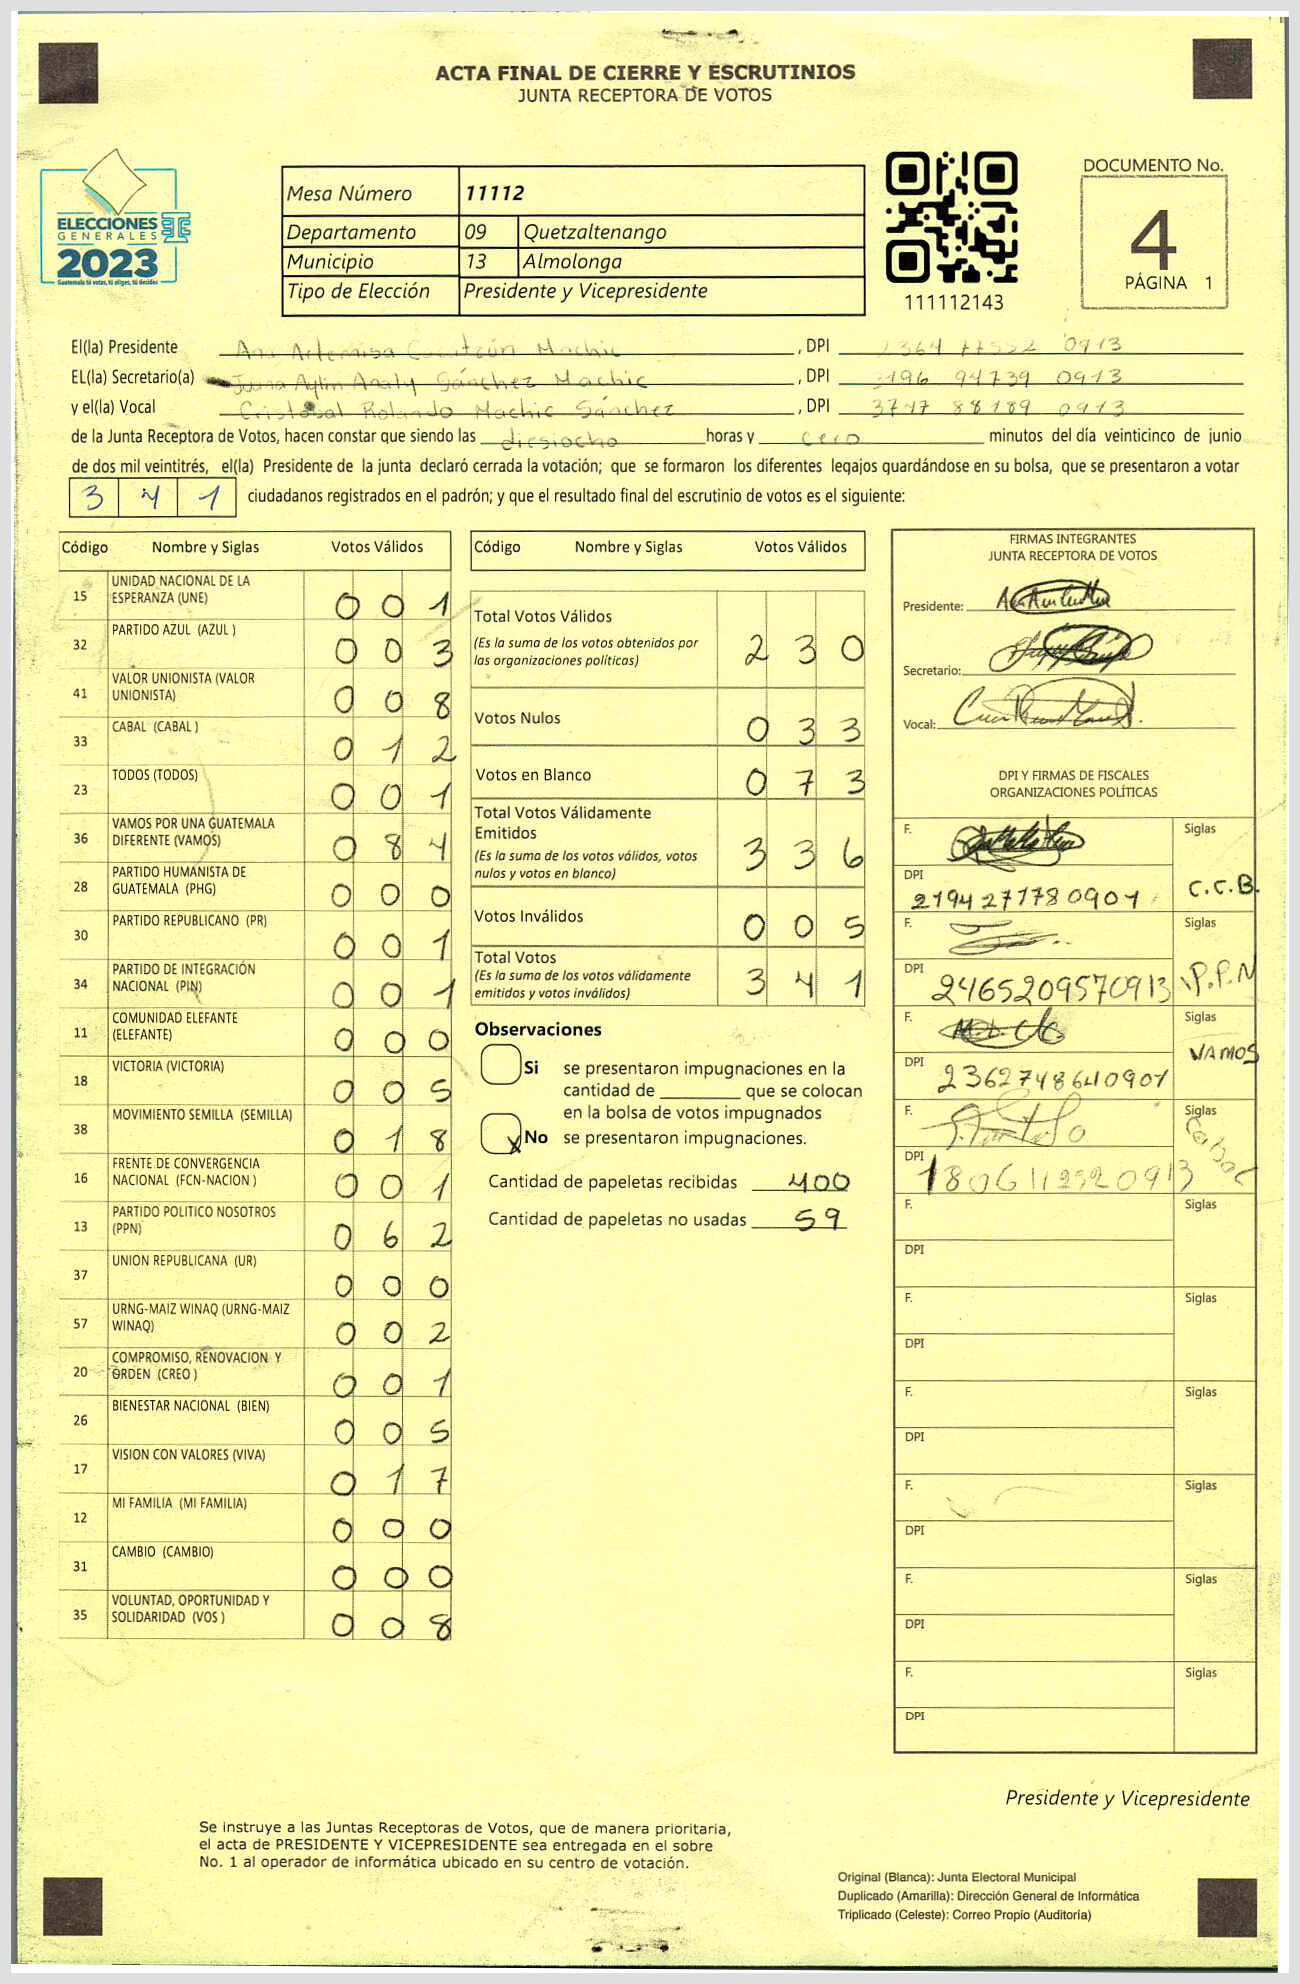 ACTA FINAL DE CIERRE Y ESCRUTINIOS
JUNTA RECEPTORA DE VOTOS
ELECCIONES
GENERALES
2023
Guatemala tú votas, tú eliges, tú decides
Mesa Número 11112
Departamento 09 Quetzaltenango
Municipio 13 Almolonga
Tipo de Elección Presidente y Vicepresidente
111112143
DOCUMENTO No.
4
PÁGINA 1
El(la) Presidente Ana Artemisa Machic , DPI 0913
EL(la) Secretario(a) Juana Aylin Analy Sánchez Machic , DPI 3196 94739 0913
y el(la) Vocal Cristobal Rolando Machic Sánchez , DPI 3747 88189 0913
de la Junta Receptora de Votos, hacen constar que siendo las diesiocho horas y cero minutos del día veinticinco de junio
de dos mil veintitrés, el(la) Presidente de la junta declaró cerrada la votación; que se formaron los diferentes legajos guardándose en su bolsa, que se presentaron a votar
3 4 1 ciudadanos registrados en el padrón; y que el resultado final del escrutinio de votos es el siguiente:
Código Nombre y Siglas Votos Válidos
15 UNIDAD NACIONAL DE LA ESPERANZA (UNE) 0 0 1
32 PARTIDO AZUL (AZUL ) 0 0 3
41 VALOR UNIONISTA (VALOR UNIONISTA) 0 0 8
33 CABAL (CABAL ) 0 1 2
23 TODOS (TODOS) 0 0 1
36 VAMOS POR UNA GUATEMALA DIFERENTE (VAMOS) 0 8 4
28 PARTIDO HUMANISTA DE GUATEMALA (PHG) 0 0 0
30 PARTIDO REPUBLICANO (PR) 0 0 1
34 PARTIDO DE INTEGRACIÓN NACIONAL (PIN) 0 0 1
11 COMUNIDAD ELEFANTE (ELEFANTE) 0 0 0
18 VICTORIA (VICTORIA) 0 0 5
38 MOVIMIENTO SEMILLA (SEMILLA) 0 1 8
16 FRENTE DE CONVERGENCIA NACIONAL (FCN-NACION ) 0 0 1
13 PARTIDO POLITICO NOSOTROS (PPN) 0 6 2
37 UNION REPUBLICANA (UR) 0 0 0
57 URNG-MAIZ WINAQ (URNG-MAIZ WINAQ) 0 0 2
20 COMPROMISO, RENOVACION Y ORDEN (CREO ) 0 0 1
26 BIENESTAR NACIONAL (BIEN) 0 0 5
17 VISION CON VALORES (VIVA) 0 1 7
12 MI FAMILIA (MI FAMILIA) 0 0 0
31 CAMBIO (CAMBIO) 0 0 0
35 VOLUNTAD, OPORTUNIDAD Y SOLIDARIDAD (VOS ) 0 0 8
Código Nombre y Siglas Votos Válidos
Total Votos Válidos
(Es la suma de los votos obtenidos por
las organizaciones políticas) 2 3 0
Votos Nulos 0 3 3
Votos en Blanco 0 7 3
Total Votos Válidamente
Emitidos
(Es la suma de los votos válidos, votos
nulos y votos en blanco) 3 3 6
Votos Inválidos 0 0 5
Total Votos
(Es la suma de los votos válidamente
emitidos y votos inválidos) 3 4 1
Observaciones
Si se presentaron impugnaciones en la
cantidad de ________ que se colocan
en la bolsa de votos impugnados
x No se presentaron impugnaciones.
Cantidad de papeletas recibidas 400
Cantidad de papeletas no usadas 59
FIRMAS INTEGRANTES
JUNTA RECEPTORA DE VOTOS
Presidente:
Secretario:
Vocal:
DPI Y FIRMAS DE FISCALES
ORGANIZACIONES POLÍTICAS
F. Siglas
DPI 2194277780901 C.C.B.
F. Siglas
DPI 2465209570913 P.P.N
F. Siglas
DPI 2362748640901 VAMOS
F. Siglas
DPI
F. Siglas
DPI
F. Siglas
DPI
F. Siglas
DPI
F. Siglas
DPI
F. Siglas
DPI
F. Siglas
DPI
Presidente y Vicepresidente
Se instruye a las Juntas Receptoras de Votos, que de manera prioritaria,
el acta de PRESIDENTE Y VICEPRESIDENTE sea entregada en el sobre
No. 1 al operador de informática ubicado en su centro de votación.
Original (Blanca): Junta Electoral Municipal
Duplicado (Amarilla): Dirección General de Informática
Triplicado (Celeste): Correo Propio (Auditoría)